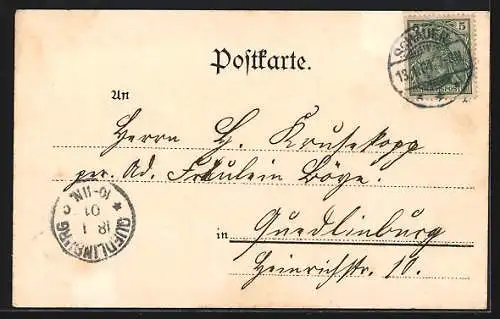 Postkarte.
SCHAUEN
5
An
Herrn H. Krusekopp
per. Ad. Fräulein Böge.
in Quedlinburg
Heinrichstr. 10.
QUEDLINBURG
18 1 01
10-11N.
c